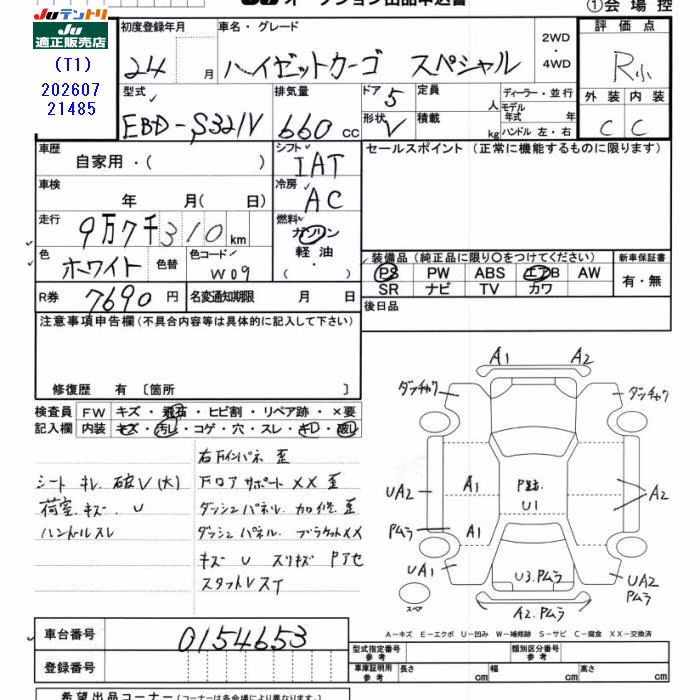 Juテントリ
Ju
適正販売店
(T1)
202607
21485
①会場控
初度登録年月
24
月
車名・グレード
ハイゼットカーゴ スペシャル
2WD
・
4WD
評価点
R小
外装
内装
C
C
型式
EBD-S321V
排気量
660 cc
ドア
5
形状
V
定員
人
積載
kg
ディーラー・並行
モデル
年式
年
ハンドル 左・右
車歴
自家用・( )
シフト
IAT
セールスポイント (正常に機能するものに限ります)
車検
年 月( 日)
冷房
AC
走行
9万7千310km
燃料
ガソリン
軽油
・
( )
色
ホワイト
色替
色コード
W09
装備品(純正品に限り〇をつけてください)
PS PW ABS エアB AW
SR ナビ TV カワ
新車保証書
有・無
R券
7690円
名変通知期限 月 日
後日品
注意事項申告欄(不具合内容等は具体的に記入して下さい)
修復歴 有 〔箇所 〕
検査員
記入欄
FW キズ・飛石・ヒビ割・リペア跡・×要
内装 キズ・汚レ・コゲ・穴・スレ・キレ・破レ
シート キレ 破V(大)
荷室 キズ U
ハンドルスレ
右Fインパネ 歪
フロアサポート XX 歪
ダッシュパネル 加修 歪
ダッシュパネル ブラケットXX
キズ U スリキズ Pアセ
スタットVスイ
A1
A2
ダッチャク
ダッチャク
UA2
A1
P跡
U1
A2
Pムラ
A1
UA1
U3.Pムラ
UA2
Pムラ
スペア
A2.Pムラ
A-キズ E-エクボ U-凹み W-補修跡 S-サビ C-腐食 XX-交換済
車台番号
0154653
登録番号
型式指定番号
参考
類別区分番号
参考
車庫証明用
参考
長さ cm
幅 cm
高さ cm
希望出品コーナー(コーナーは各会場により異なります)